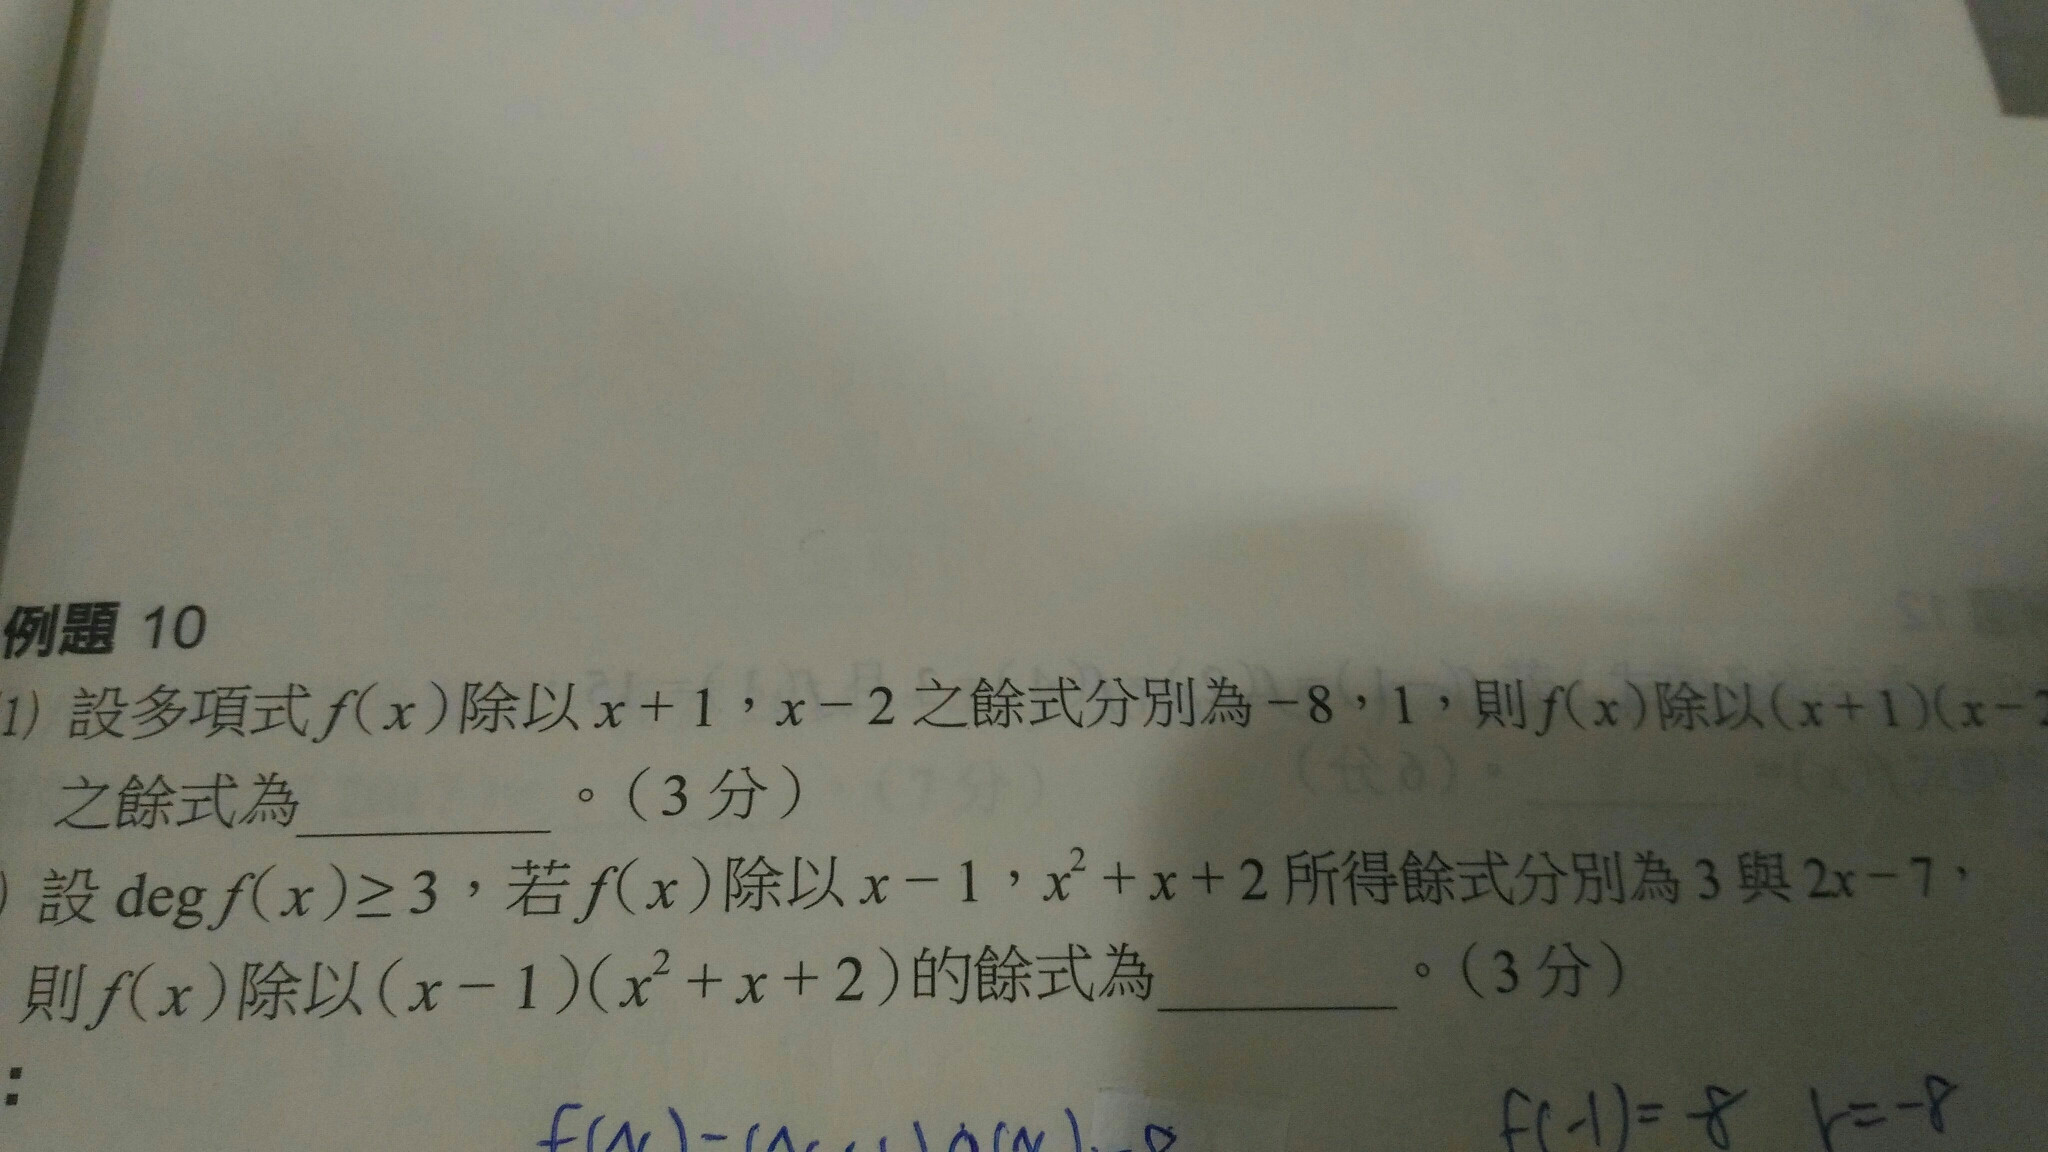 例題 10
(1) 設多項式 f(x)除以 x+1，x-2 之餘式分別為-8，1，則f(x)除以(x+1)(x-2
之餘式為________。(3 分)
) 設 deg f(x)≥3，若f(x)除以 x-1，x²+x+2 所得餘式分別為 3 與 2x-7，
則f(x)除以(x-1)(x²+x+2)的餘式為________。(3 分)
:
f(-1)=-8 r=-8